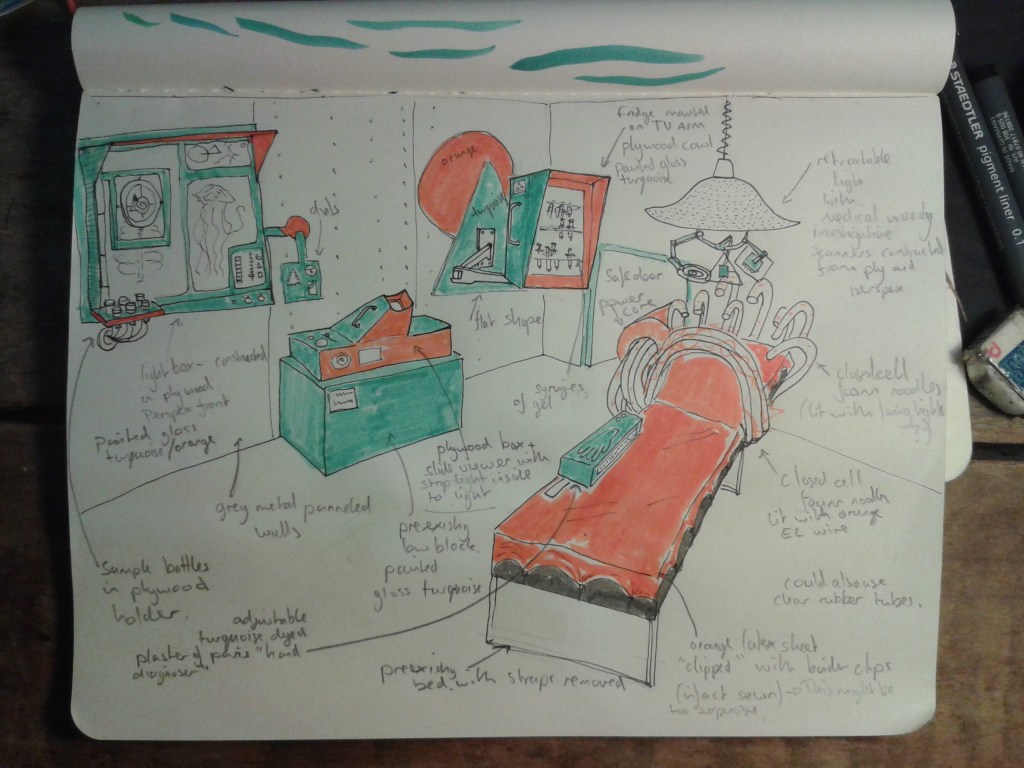 orange
turquoise
dials
fridge mounted
on TV Arm
plywood cowl
painted gloss
turquoise
retractable
light
with
medical
scanners constructed
from ply and
perspex
STAEDTLER pigment liner 0.1
Safe door
power
core
flat shape
light box - constructed
in plywood
Perspex front
painted gloss
turquoise/orange
syringes
of gel
closed cell
foam noodles
(lit with
plywood box +
slide viewer with
inside
to light
grey metal pannelled
walls
closed cell
foam noodle
lit with orange
EL wire
preexisting
low block
painted
gloss turquoise
Sample bottles
in plywood
holder.
could also use
clear rubber tubes.
adjustable
turquoise dyed
plaster of paris "hand
diagnoser"
preexisting
bed with straps removed
orange latex sheet
"clipped" with
clips
(infact sewn) → This might be
too expensive.